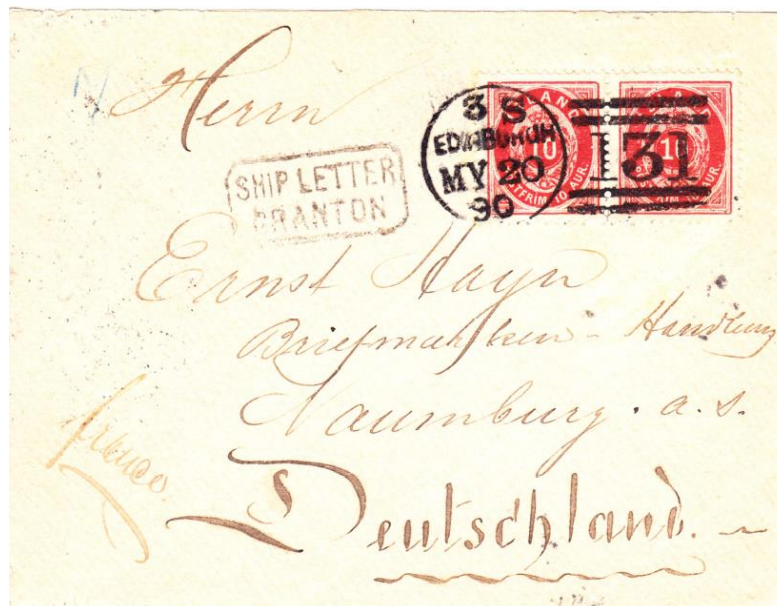 Herrn
SHIP LETTER
GRANTON
3 S
EDINBURGH
MY 20
90
131
10
10
Ernst Hayn
Briefmarken-Handlung
Naumburg. a. s.
franco.
Deutschland.